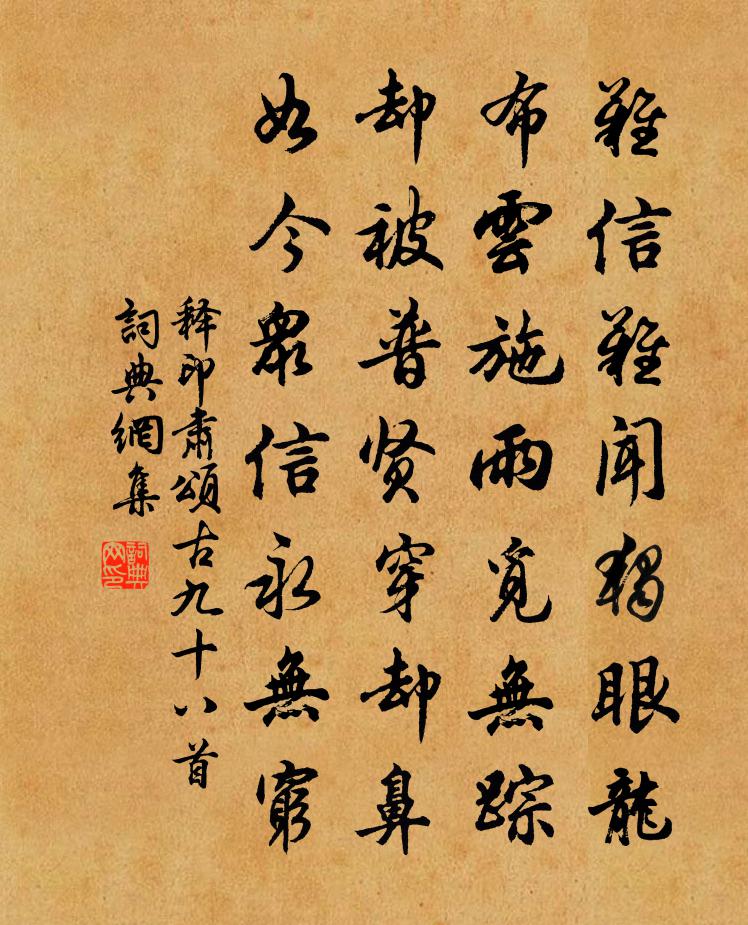 難信難聞獨眼龍
布雲施雨覓無踪
却被普贤穿却鼻
如今眾信永無窮
释印肅頌古九十八首
詞典網集
詞典网印